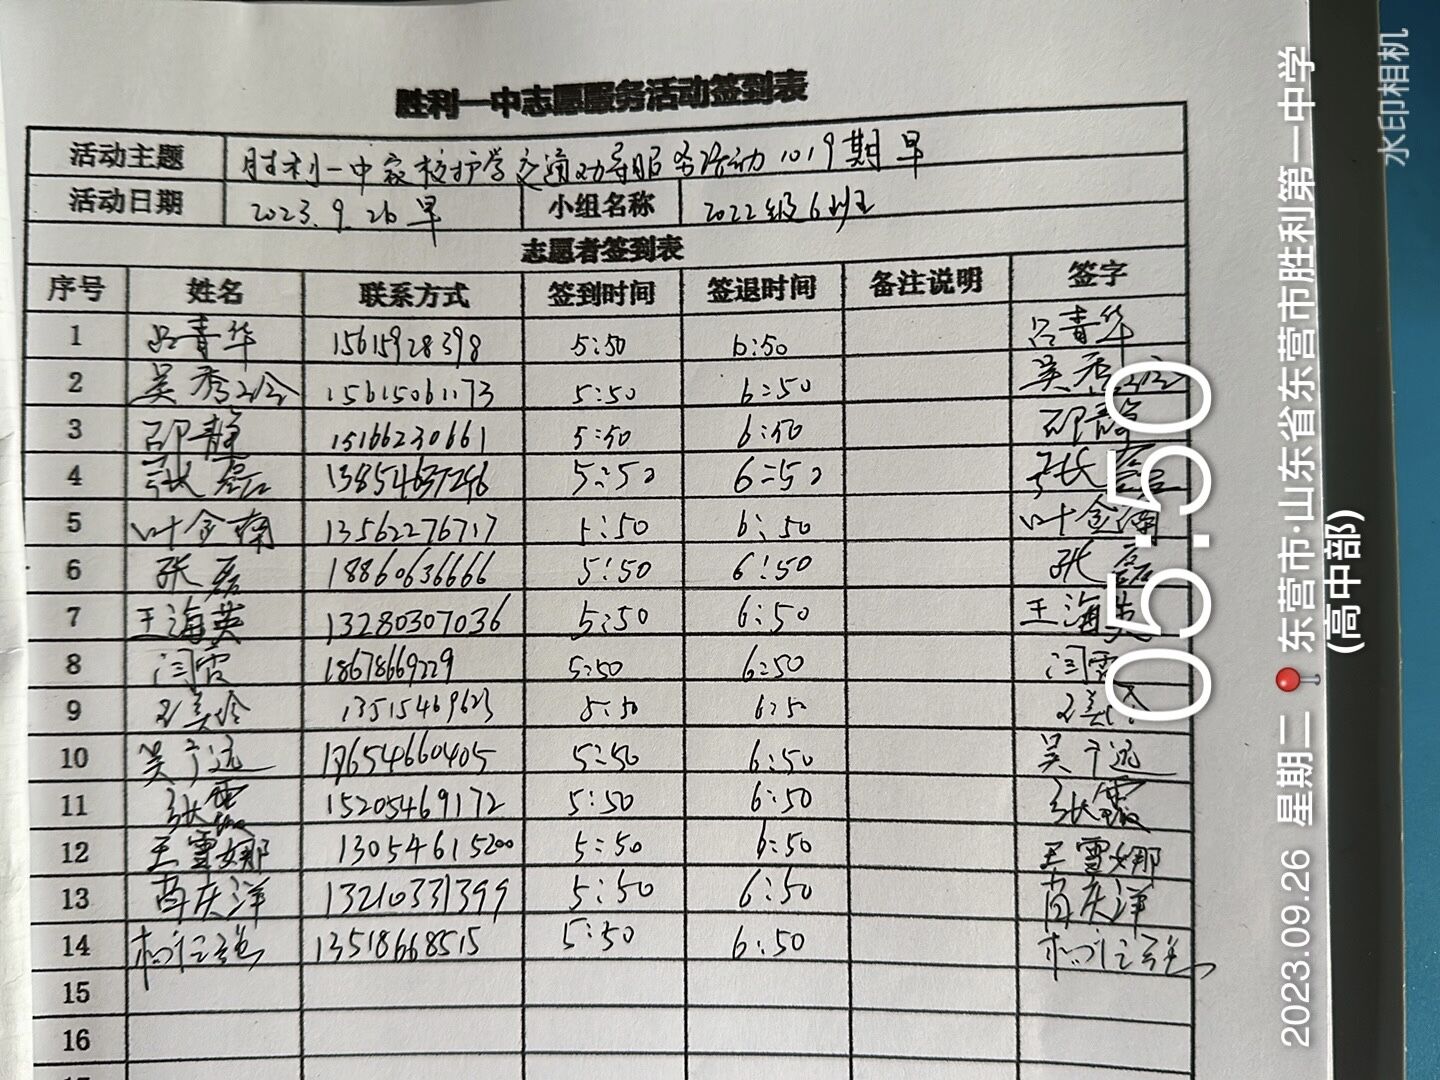 胜利一中志愿服务活动签到表
活动主题 胜利一中家校护学交通劝导服务活动1019期早
活动日期 2023.9.26早 小组名称 2022级6班
志愿者签到表
序号 姓名 联系方式 签到时间 签退时间 备注说明 签字
1 吕青华 15615928398 5:50 6:50 吕青华
2 吴秀玲 15615061173 5:50 6:50 吴秀玲
3 邵静 15166230661 5:50 6:50 邵静
4 张磊 13854637296 5:50 6:50 张磊
5 叶金南 13562276717 5:50 6:50 叶金南
6 张磊 18860636666 5:50 6:50 张磊
7 王海英 13280307036 5:50 6:50 王海英
8 闫霞 18678669229 5:50 6:50 闫霞
9 王美玲 13515469623 5:50 6:50 王美玲
10 吴宁远 17654660405 5:50 6:50 吴宁远
11 张霞 15205469172 5:50 6:50 张霞
12 王雪娜 13054615200 5:50 6:50 王雪娜
13 苗庆洋 13210331399 5:50 6:50 苗庆洋
14 13518668515 5:50 6:50
15
16
05:50
2023.09.26 星期二 东营市·山东省东营市胜利第一中学
(高中部)
水印相机